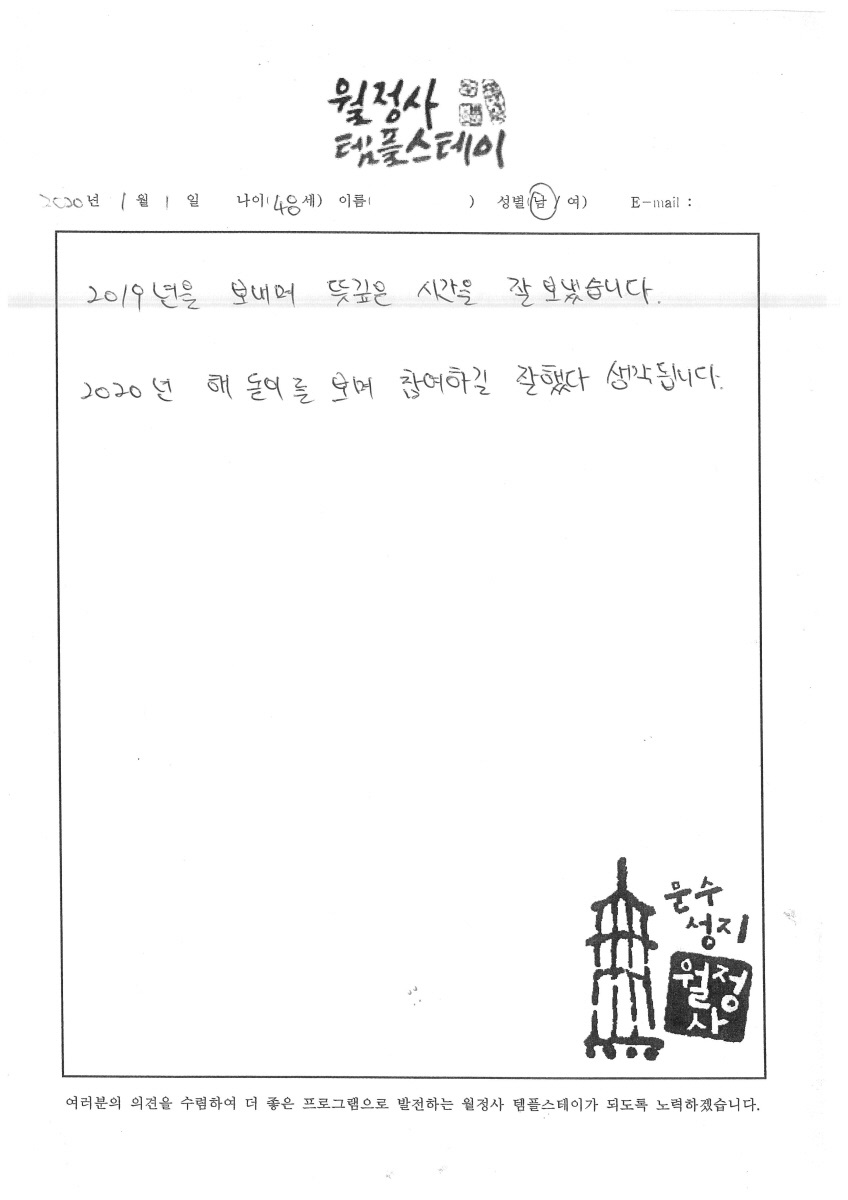 월정사
템플스테이
2020년 1월 1일 나이(48세) 이름( ) 성별(남/여) E-mail :
2019년을 보내며 뜻깊은 시간을 잘 보냈습니다.
2020년 해돋이를 보며 참여하길 잘했다 생각됩니다.
문수
성지
월정
사
여러분의 의견을 수렴하여 더 좋은 프로그램으로 발전하는 월정사 템플스테이가 되도록 노력하겠습니다.